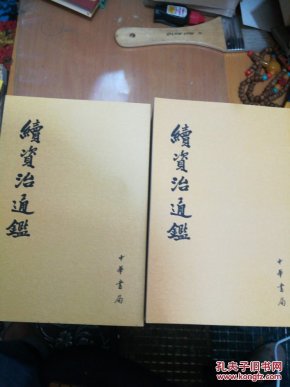 續資治通鑑
中華書局
續資治通鑑
中華書局
孔夫子旧书网